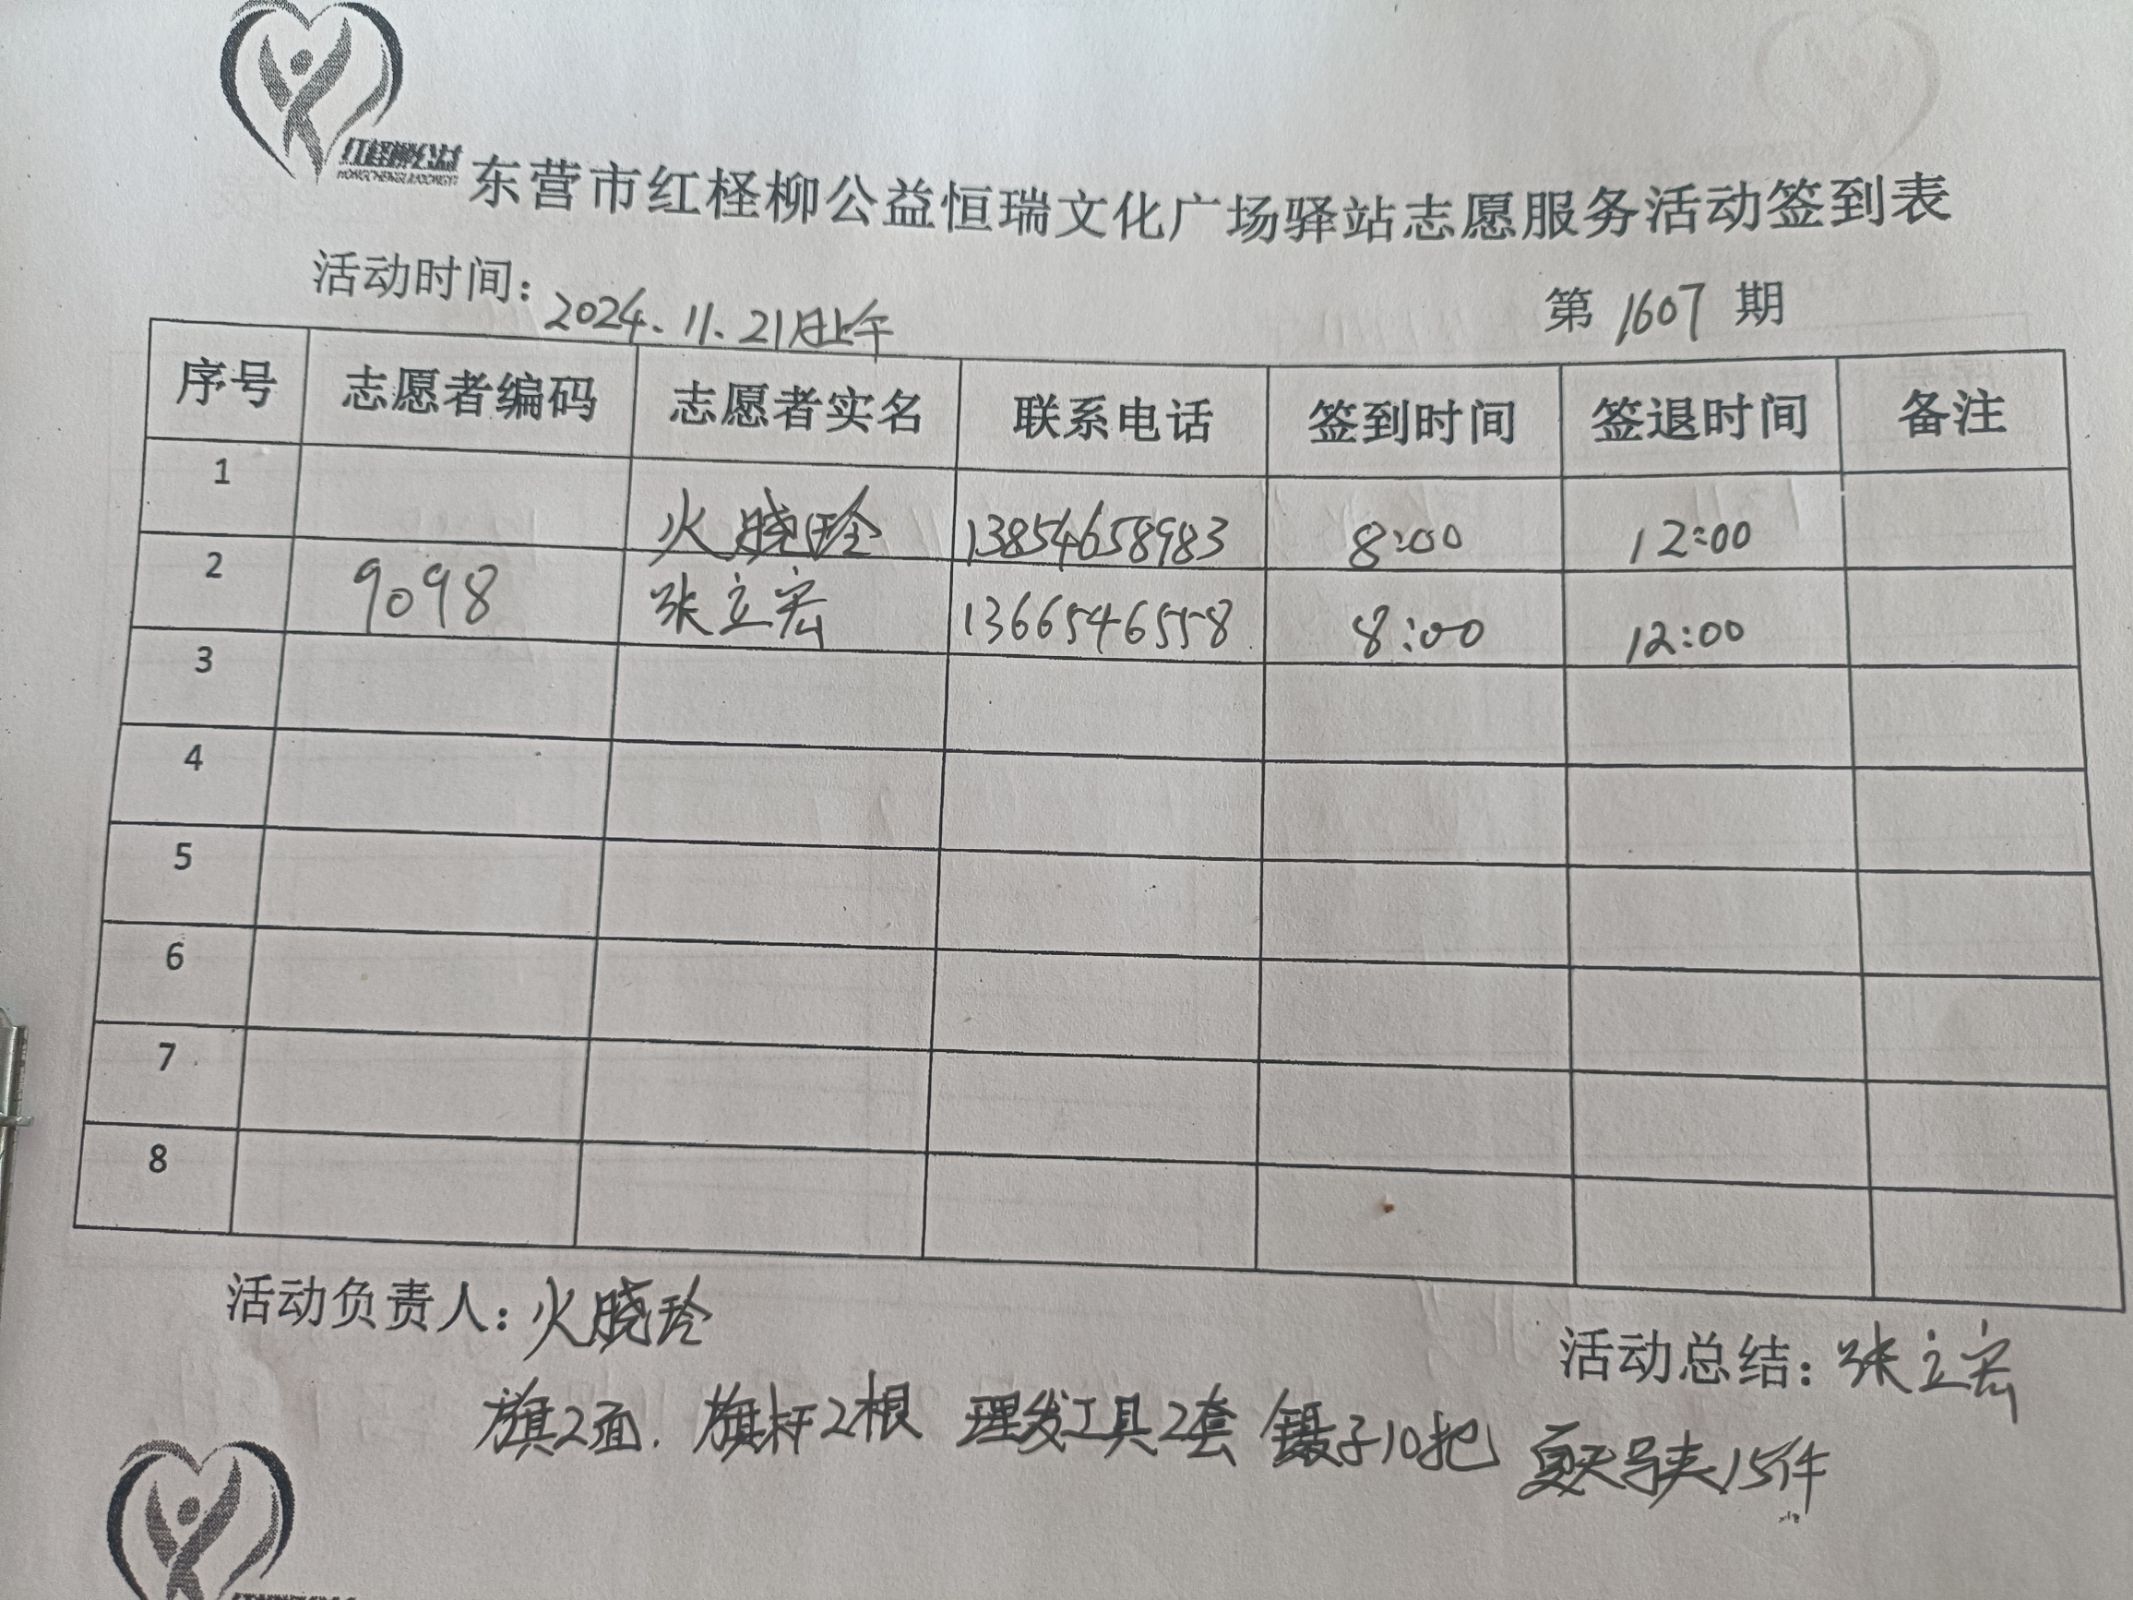 红柽柳公益
东营市红柽柳公益恒瑞文化广场驿站志愿服务活动签到表
活动时间：2024.11.21日上午 第1607期
序号 志愿者编码 志愿者实名 联系电话 签到时间 签退时间 备注
1 火晓玲 13854658983 8:00 12:00
2 9098 张立宏 13665465558 8:00 12:00
3
4
5
6
7
8
活动负责人：火晓玲
活动总结：张立宏
旗2面. 旗杆2根 理发工具2套 镊子10把 夏天马夹15件